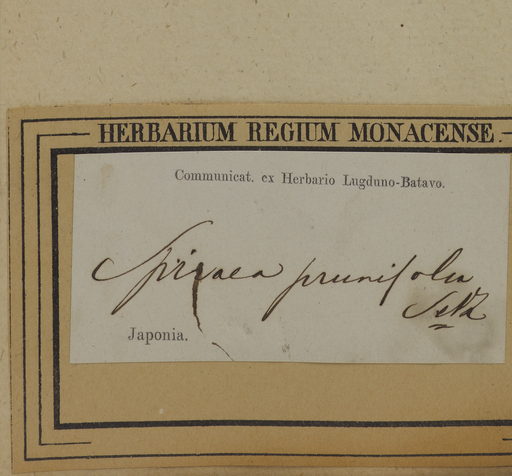 HERBARIUM REGIUM MONACENSE.
Communicat. ex Herbario Lugduno-Batavo.
Spiraea prunifolia
Japonia.